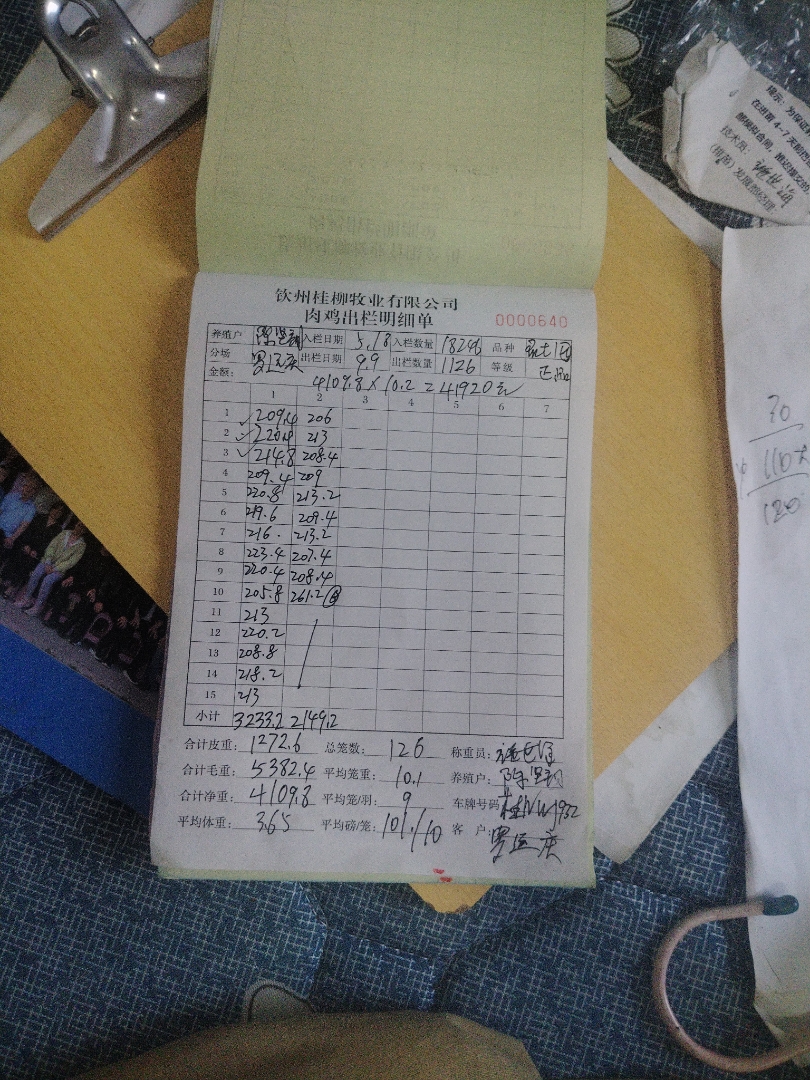 钦州桂柳牧业有限公司
肉鸡出栏明细单
0000640
养殖户 入栏日期 5.18 入栏数量 18246 品种
分场 罗运庆 出栏日期 9.9 出栏数量 1126 等级 正品
金额: 4109.8 × 10.2 = 41920元
1 2 3 4 5 6 7
1 209.4 206
2 220.8 213
3 214.8 208.4
4 209.4 209
5 220.8 213.2
6 219.6 209.4
7 216. 213.2
8 223.4 207.4
9 220.4 208.4
10 205.8 261.2
11 213
12 220.2
13 208.8
14 218.2
15 213
小计 3233.2 2149.2
合计皮重: 1272.6 总笼数: 126 称重员:
合计毛重: 5382.4 平均笼重: 10.1 养殖户:
合计净重: 4109.8 平均笼/羽: 9 车牌号码
平均体重: 3.65 平均磅/笼: 101./10 客户: 罗运庆
提示: 为保证
在进苗4-7天
技术员:
70
110
120